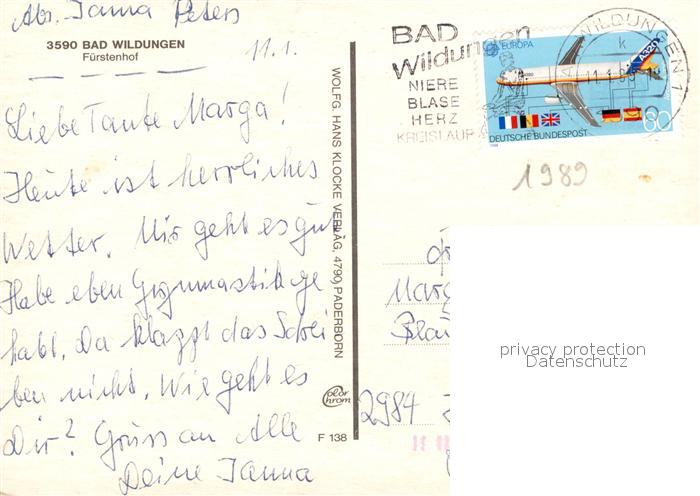 Abs. Janna Peters
3590 BAD WILDUNGEN
Fürstenhof
11.1.
Liebe Tante Marga!
Heute ist herrliches
Wetter. Mir geht es gut.
Habe eben Gymnastik ge
habt. Da klappt das Schrei
ben nicht. Wie geht es
Dir? Gruss an Alle
Deine Janna
WOLFG. HANS KLOCKE VERLAG, 4790 PADERBORN
Color
chrom
F 138
BAD
Wildungen
NIERE
BLASE
HERZ
KREISLAUF
WILDUNGEN 1
k
EUROPA
A320
DEUTSCHE BUNDESPOST
80
1989
Marg
2984
privacy protection
Datenschutz